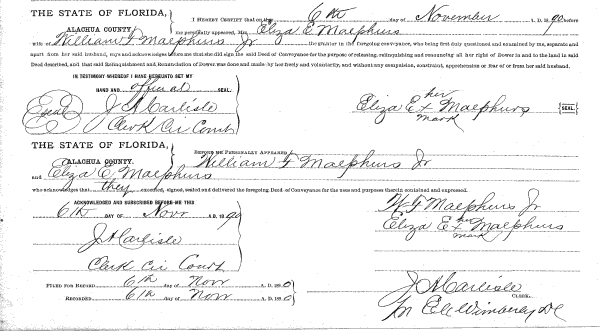 THE STATE OF FLORIDA,
ALACHUA COUNTY.
I HEREBY CERTIFY that on this 6th day of November A. D. 1890 before
me personally appeared, Mrs. Eliza E Maephurs
wife of William F Maephurs Jr the grantor in the foregoing conveyance, who being first duly questioned and examined by me, separate and
apart from her said husband, says and acknowledges that she did sign the said Deed of Conveyance for the purpose of releasing, relinquishing and renouncing all her right of Dower in and to the land in said
Deed described, and that said Relinquishment and Renunciation of Dower was done and made by her freely and voluntarily, and without any compulsion, constraint, apprehension or fear of or from her said husband.
IN TESTIMONY WHEREOF I HAVE HEREUNTO SET MY
HAND AND official SEAL.
Seal
J A Carlisle
Clerk Cir Court
Eliza E x Maephurs
her
mark
SEAL
THE STATE OF FLORIDA,
ALACHUA COUNTY.
BEFORE ME PERSONALLY APPEARED William F Maephurs Jr
and Eliza E, Maephurs
who acknowledges that they executed, signed, sealed and delivered the foregoing Deed of Conveyance for the uses and purposes therein contained and expressed.
ACKNOWLEDGED AND SUBSCRIBED BEFORE ME THIS
6th DAY OF Novr A. D. 1890
J A Carlisle
Clerk Cir Court
W F Maephurs Jr
Eliza E x Maephurs
her
mark
FILED FOR RECORD 6th day of Nov A. D. 1890
RECORDED 6th day of Nov A. D. 1890
J A Carlisle
CLERK.
E C Wimberly DC